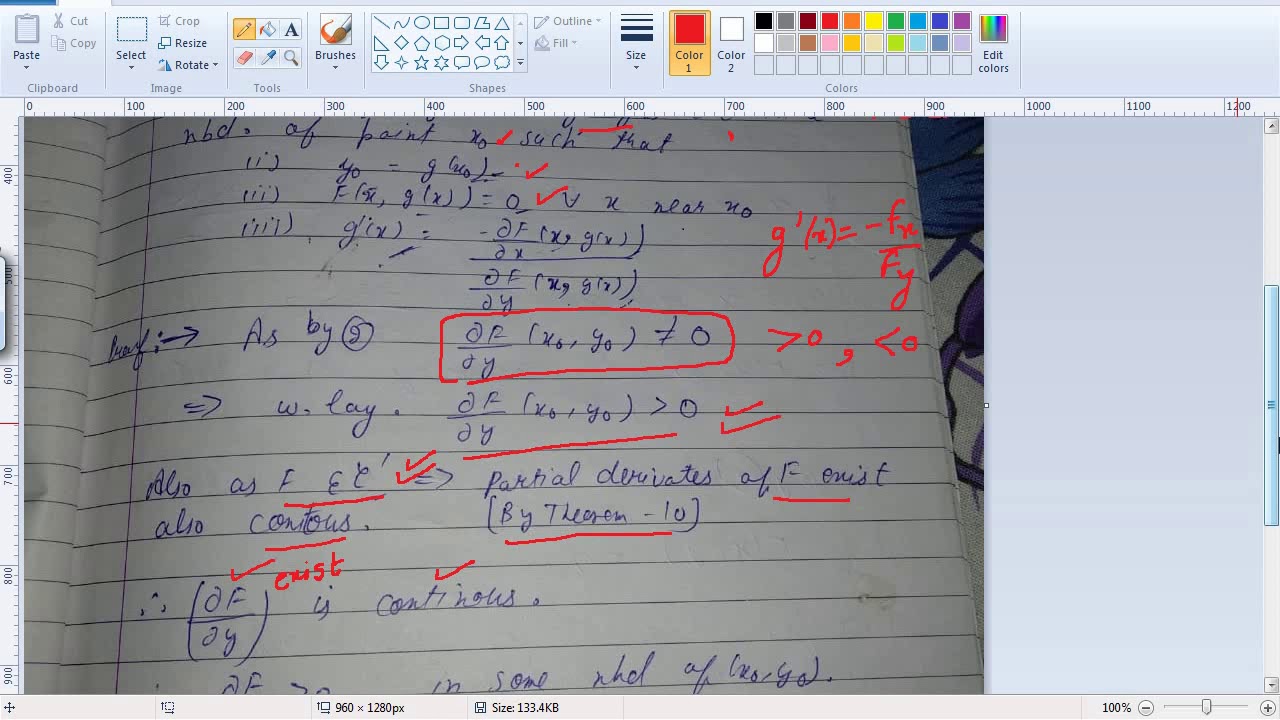 Cut
Copy
Paste
Clipboard
Select
Crop
Resize
Rotate
Image
A
Tools
Brushes
Shapes
Outline
Fill
Size
Color 1
Color 2
Edit colors
Colors
0 100 200 300 400 500 600 700 800 900 1000 1100 1200
400
600
700
800
900
nbd. of point x₀ such that
(i) y₀ = g(x₀)
(ii) F(x, g(x)) = 0 ∀ x near x₀
(iii) g'(x) = -∂F/∂x (x, g(x)) / ∂F/∂y (x, g(x))
g'(x) = -fx/Fy
Proof: → As by ② ∂F/∂y (x₀, y₀) ≠ 0 >0, <0
⇒ w. lay. ∂F/∂y (x₀, y₀) > 0
Also as F ∈ C' ⇒ Partial derivates of F exist
also contous. [By Theorem - 10]
exist
∴ (∂F/∂y) is continous.
∂F >0 in some nbd of (x₀, y₀).
960 × 1280px
Size: 133.4KB
100%